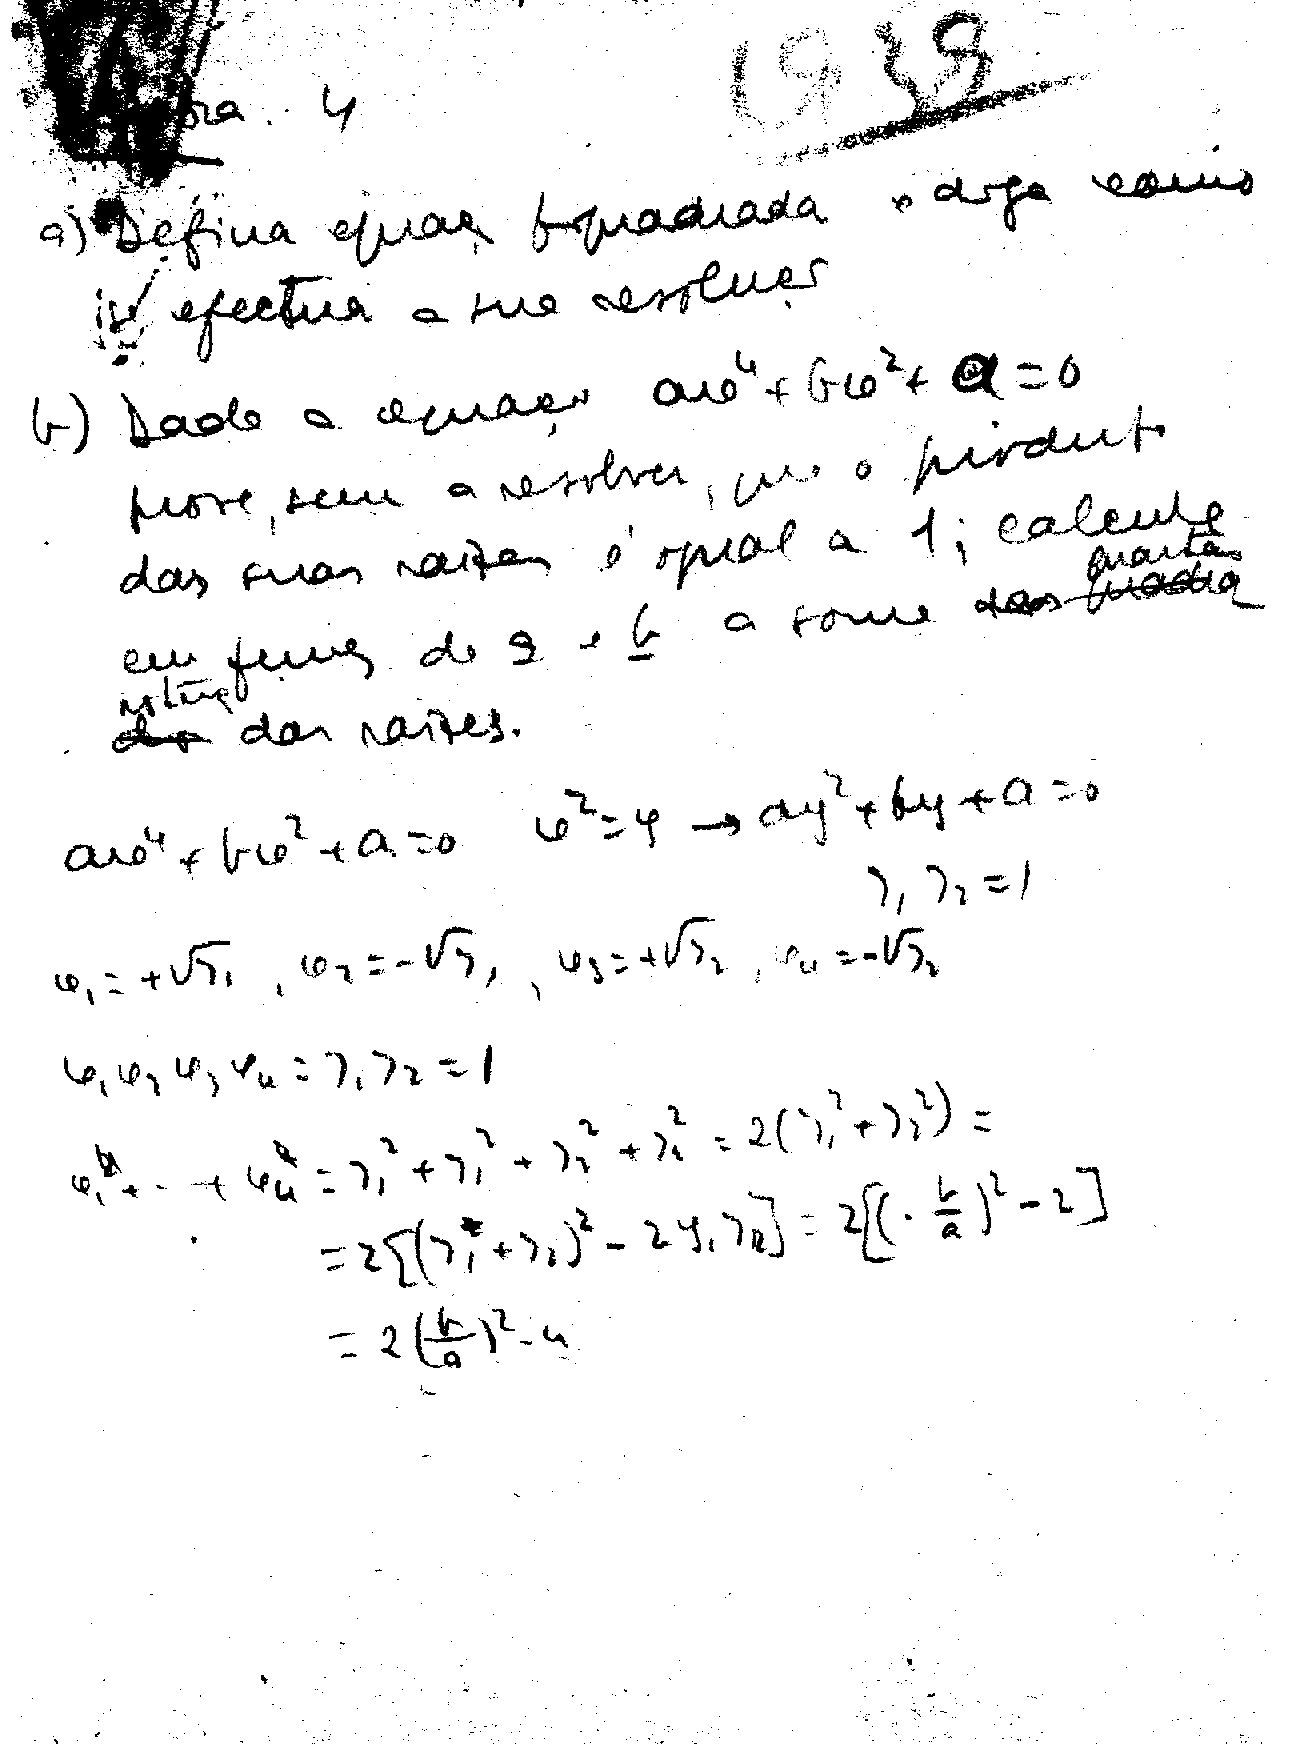 1939
4
a) Defina equação biquadrada e diga como
se efectua a sua resolução
b) Dada a equação ax⁴ + bx² + a = 0
prove, sem a resolver, que o produto
das suas raízes é igual a 1; calcule
quartas
em função de a e b a soma das
potências
das raízes.
ax⁴ + bx² + a = 0 x² = y → ay² + by + a = 0
y₁ y₂ = 1
x₁ = +√y₁ , x₂ = -√y₁ , x₃ = +√y₂ , x₄ = -√y₂
x₁ x₂ x₃ x₄ = y₁ y₂ = 1
x₁⁴ + - + x₄⁴ = y₁² + y₁² + y₂² + y₂² = 2(y₁² + y₂²) =
= 2[(y₁ + y₂)² - 2y₁ y₂] = 2[(-b/a)² - 2]
= 2(b/a)² - 4